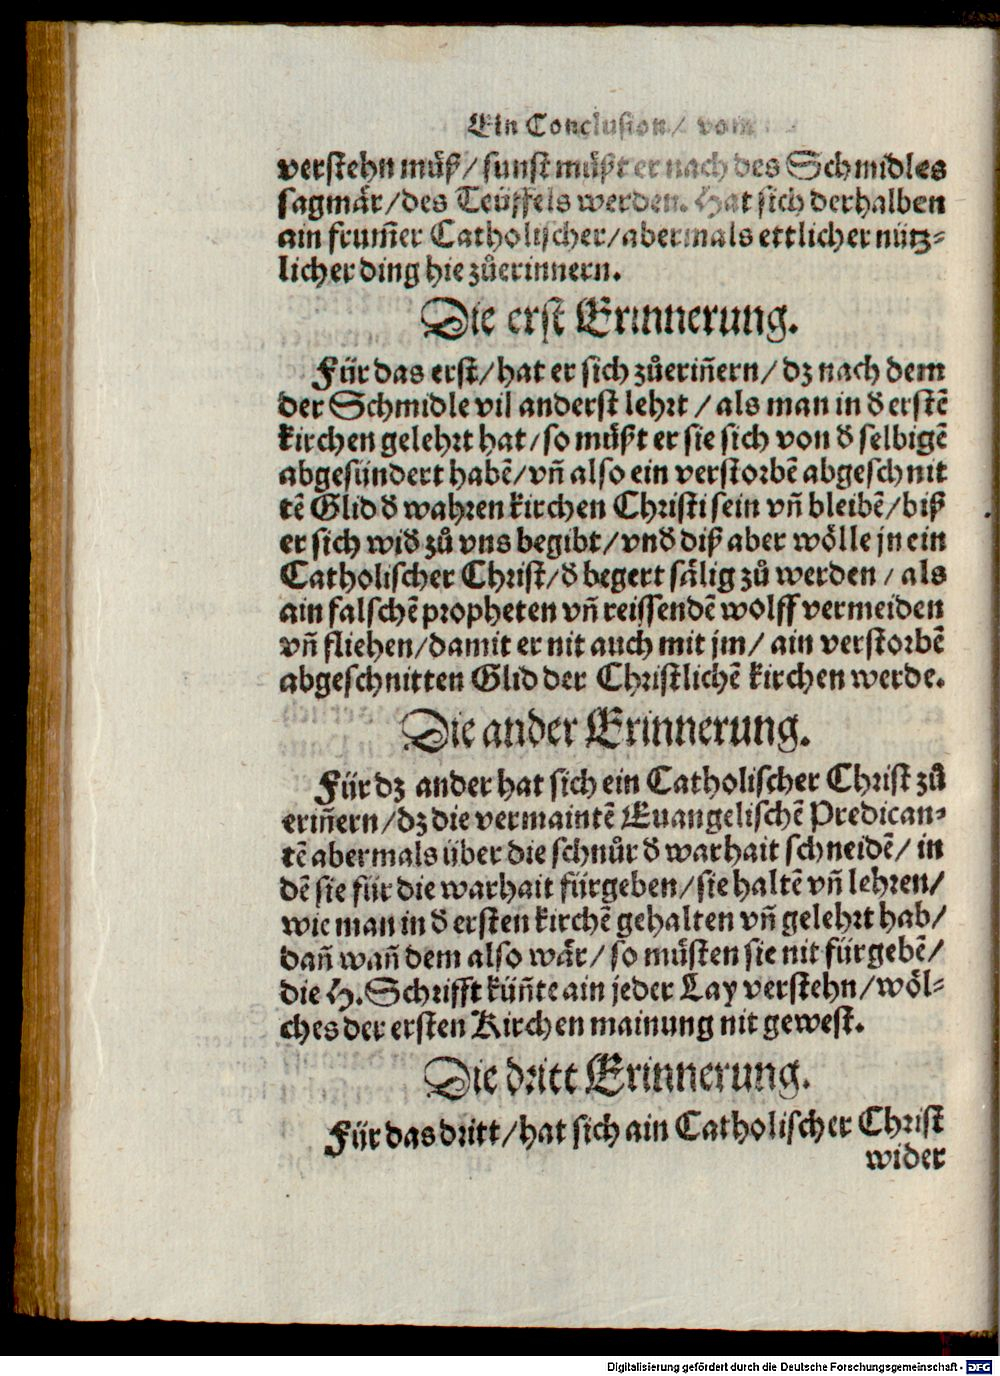 Ein Conclusion/ vom
verstehn müß/ sunst müßt er nach des Schmidles
sagmär/ des Teüffels werden. Hat sich derhalben
ain frum̃er Catholischer/ abermals ettlicher nütz⸗
licher ding hie zůerinnern.
Die erst Erinnerung.
Für das erst/ hat er sich zůerin̄ern/ dz nach dem
der Schmidle vil anderst lehrt / als man in d̕ erstē
kirchen gelehrt hat/ so müßt er sie sich von d̕ selbigē
abgesündert habē/ vn̄ also ein verstorbē abgeschnit
tē Glid d̕ wahren kirchen Christi sein vn̄ bleibē/ biß
er sich wid̕ zů vns begibt/ vnd̕ diß aber wölle jn ein
Catholischer Christ/ d̕ begert sälig zů werden / als
ain falschē propheten vn̄ reissendē wolff vermeiden
vn̄ fliehen/ damit er nit auch mit jm/ ain verstorbē
abgeschnitten Glid der Christlichē kirchen werde.
Die ander Erinnerung.
Für dz ander hat sich ein Catholischer Christ zů
erin̄ern/ dz die vermaintē Euangelischē Predican⸗
tē abermals über die schnůr d̕ warhait schneidē/ in
dē sie für die warhait fürgeben/ sie haltē vn̄ lehren/
wie man in d̕ ersten kirchē gehalten vn̄ gelehrt hab/
dan̄ wan̄ dem also wär/ so müsten sie nit fürgebē/
die H. Schrifft kün̄te ain jeder Lay verstehn/ wöl⸗
ches der ersten Kirchen mainung nit gewest.
Die dritt Erinnerung.
Für das dritt/ hat sich ain Catholischer Christ
wider
Digitalisierung gefördert durch die Deutsche Forschungsgemeinschaft - DFG